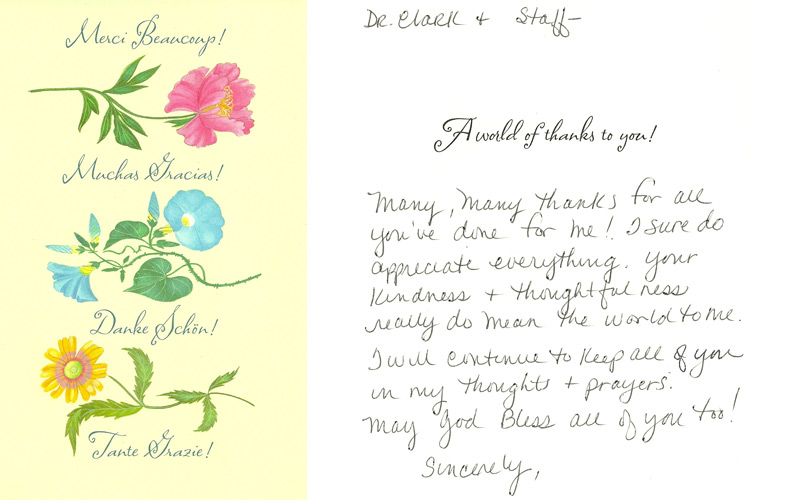 Merci Beaucoup!
Muchas Gracias!
Danke Schön!
Tante Grazie!
Dr. Clark + Staff-
A world of thanks to you!
Many, Many thanks for all
you've done for me! I sure do
appreciate everything. Your
Kindness + thoughtfulness
really do mean the world to me.
I will continue to keep all of you
in my thoughts + prayers.
May God Bless all of you too!
Sincerely,